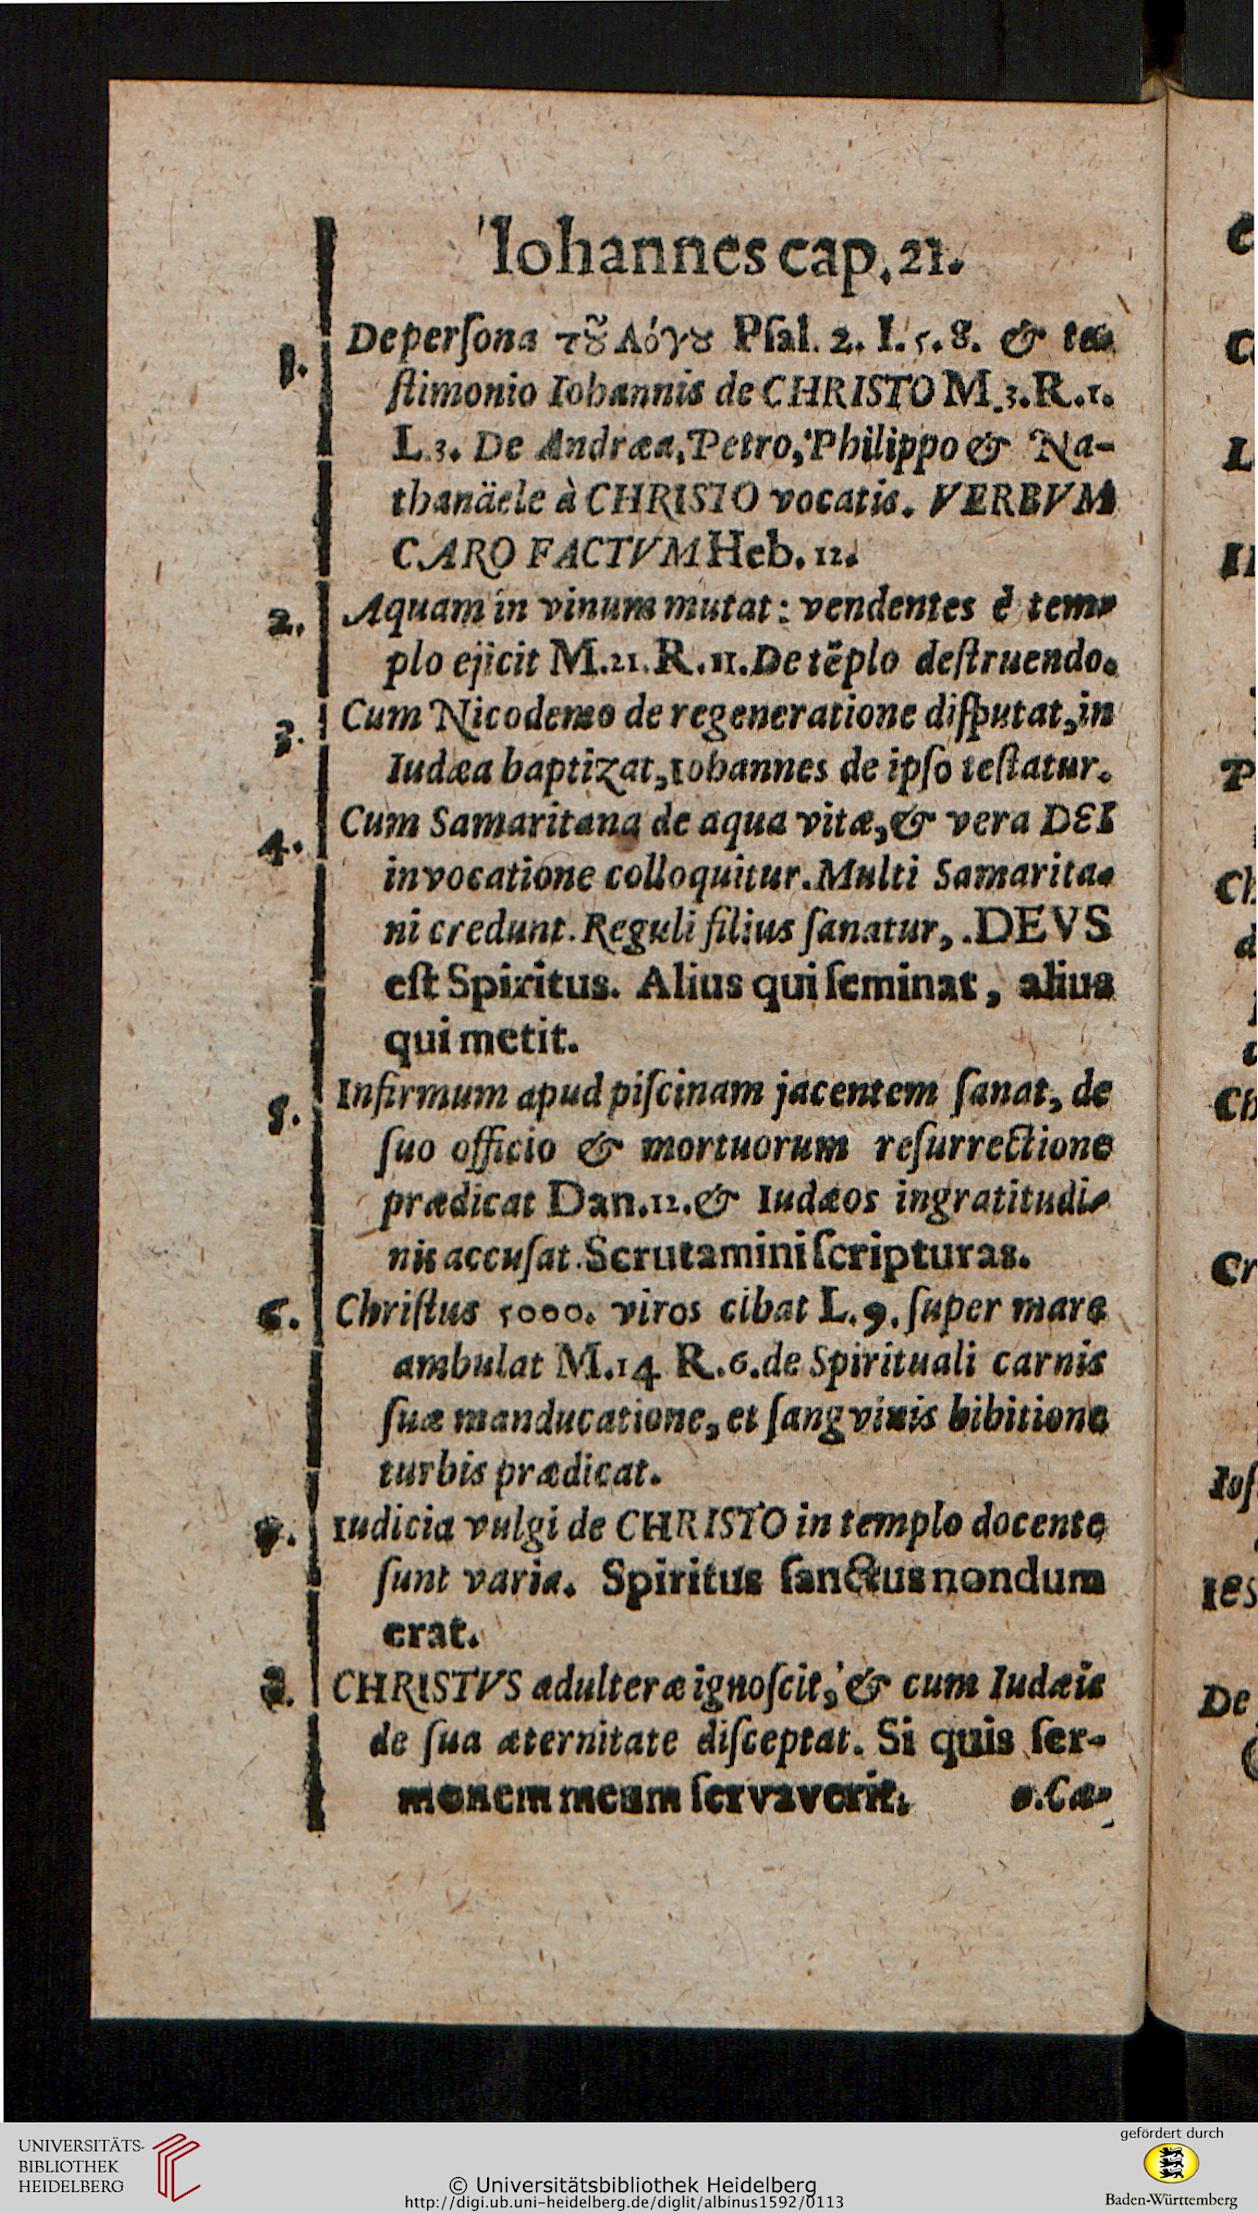 Iohannes cap. 21.
1. De perſona τȣ͂ Λόγȣ Pſal. 2. I. 5. 8. & te-
ſtimonio Iohannis de CHRISTO M. 3. R. 1.
L. 3. De Andræa, Petro, Philippo & Na-
thanäele à CHRISTO vocatis. VERBVM
CARO FACTVM Heb. 12.
2. Aquam in vinum mutat: vendentes è tem-
plo ejicit M. 21. R. 11. De tẽplo deſtruendo.
3. Cum Nicodemo de regeneratione diſputat, in
Iudæa baptizat, Iohannes de ipſo teſtatur.
4. Cum Samaritana de aqua vitæ, & vera DEI
invocatione colloquitur. Multi Samarita-
ni credunt. Reguli filius ſanatur, . DEVS
eſt Spiritus. Alius qui ſeminat, alius
qui metit.
5. Infirmum apud piſcinam jacentem ſanat, de
ſuo officio & mortuorum reſurrectione
prædicat Dan. 12. & Iudæos ingratitudi-
nis accuſat. Scrutamini ſcripturas.
6. Chriſtus 5000. viros cibat L. 9. ſuper mare
ambulat M. 14 R. 6. de Spirituali carnis
ſuæ manducatione, et ſangvinis bibitione
turbis prædicat.
7. Iudicia vulgi de CHRISTO in templo docente
ſunt varia. Spiritus ſanctus nondum
erat.
8. CHRISTVS adulteræ ignoſcit, & cum Iudæis
de ſua æternitate diſceptat. Si quis ſer-
monem meum ſervaverit.
9. Cæ-
UNIVERSITÄTS-
BIBLIOTHEK
HEIDELBERG
© Universitätsbibliothek Heidelberg
http://digi.ub.uni-heidelberg.de/diglit/albinus1592/0113
gefördert durch
Baden-Württemberg